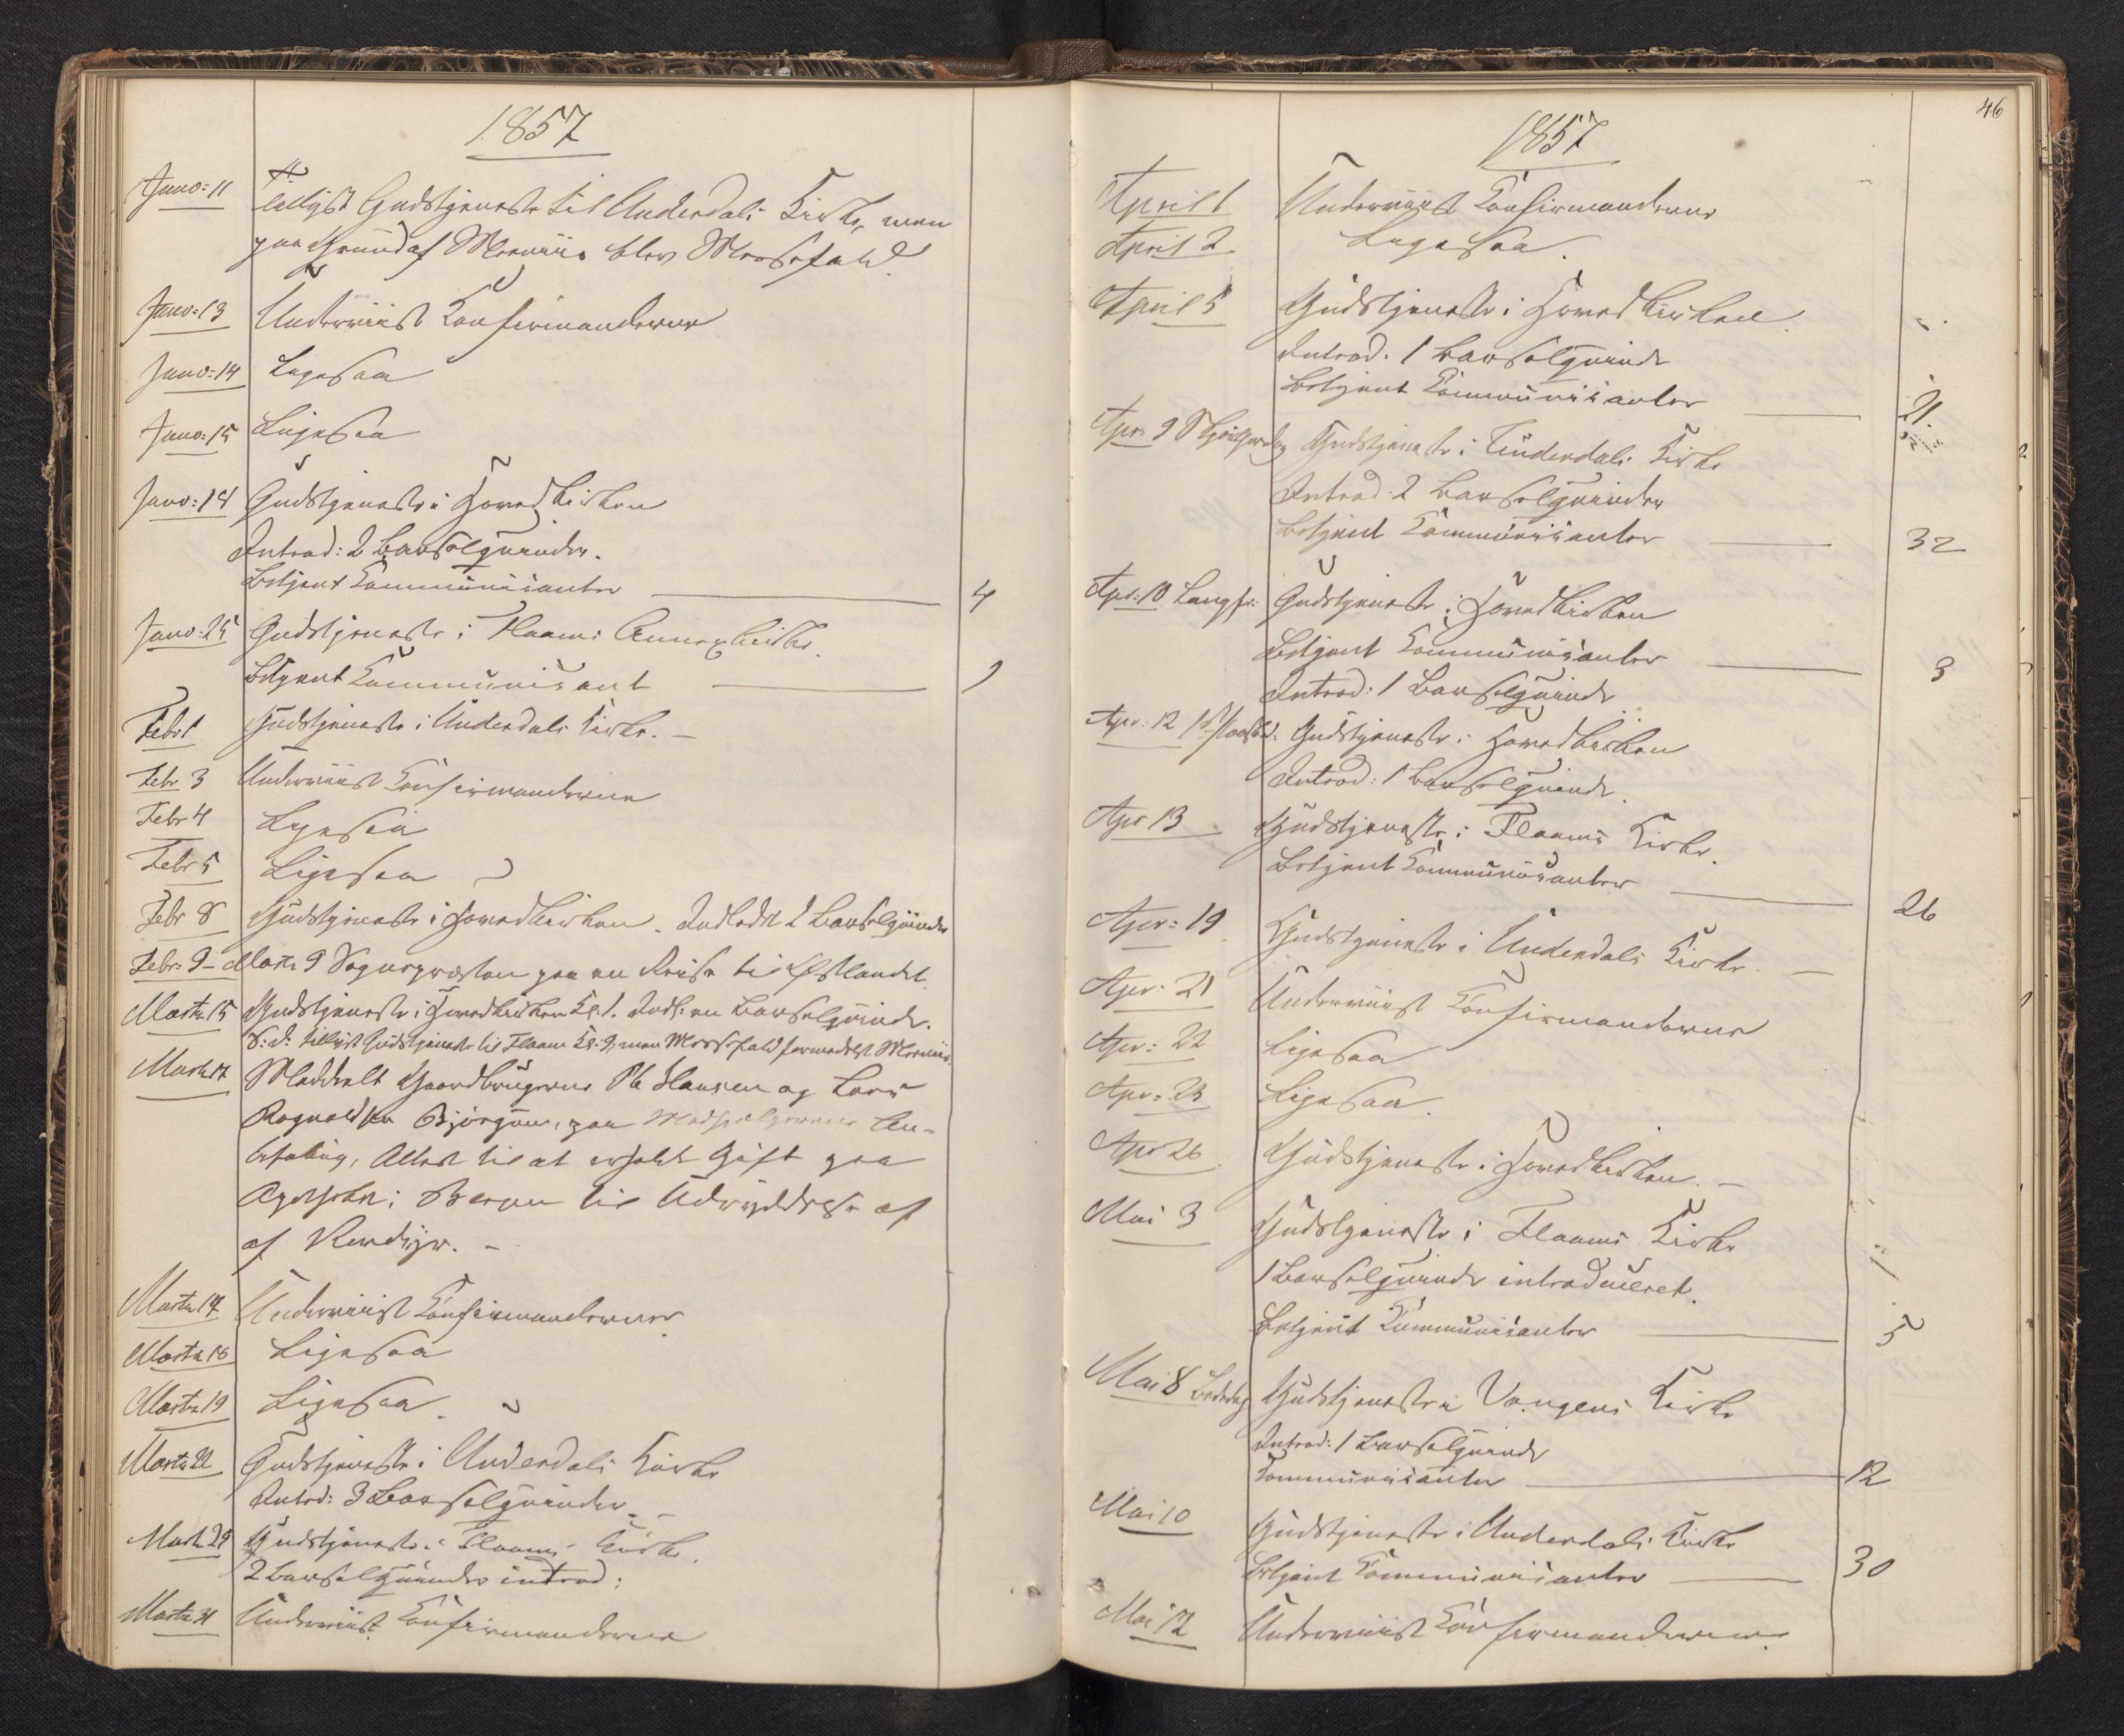 1857
Janv: 11 Tillyst Gudstjeneste til Underdals Kirke, men
paa Grund af Meenüs blev Messefald.
Janv: 13 Underviist Konfirmanderne
Janv: 14 Ligesaa
Janv: 15 Ligesaa
Janv: 18 Gudstjeneste i Hovedkirken
Introd: 2 Barselqvinder.
Betjent Communicanter 4
Janv: 25 Gudstjeneste i Flaams Annexkirke.
Betjent Communicant 1
Febr 1 Gudstjeneste i Underdals Kirke. –
Febr 3 Underviist Confirmanderne
Febr 4 Ligesaa
Febr 5 Ligesaa
Febr 8 Gudstjeneste i Hovedkirken. Indledet 2 Barselqvinder
Febr: 9 – Marts 9 Sognepræsten paa en Reise til Østlandet.
Marts 15 Gudstjeneste i Hovedkirken Kl. 1. Indl: en Barselqvinde.
S: D: tillyst Gudstjeneste til Flaam Kl: 9, men Messefald formedelst
Marts 17 Meddeelt Gaardbrugerne Ole Hansen og Lars
Ragnvaldsen Bjørgum, paa Medhjelpernes An-
befaling, Attest til at erholde Gift paa
Apotheket i Bergen til Udryddelse af
af Rovdyr. –
Marts 17 Underviist Confirmanderne
Marts 18 Ligesaa
Marts 19 Ligesaa.
Marts 22 Gudstjeneste i Underdals Kirke
Introd: 3 Barselqvinder. –
Marts 29 Gudstjeneste i Flaams Kirke.
2 Barselqvinder introd:
Marts 31 Underviist Confirmanderne
46
1857
April 1 Underviist Confirmanderne
April 2. Ligesaa.
April 5 Gudstjeneste i Hovedkirken.
Introd. 1 Barselqvinde
Betjent Communicanter 21.
Apr. 9 Skjærtorsdag Gudstjeneste i Underdals Kirke
Introd: 2 Barselqvinder
Betjent Communicanter 32
Apr: 10 Langfr: Gudstjeneste i Hovedkirken
Betjent Communicanter 3
Introd: 1 Barselqvinde
Apr: 12 1st Paaskd: Gudstjeneste i Hovedkirken
Introd: 1 Barselqvinde.
Apr 13 Gudstjeneste i Flaams Kirke.
Betjent Communicanter 26
Apr: 19 Gudstjeneste i Underdals Kirke. –
Apr: 21 Underviist Confirmanderne
Apr: 22 Ligesaa
Apr: 23 Ligesaa.
Apr 26 Gudstjeneste i Hovedkirken. –
Mai 3 Gudstjeneste i Flaams Kirke
1 Barselqvinde introduceret.
Betjent Communicanter 5
Mai 8 Bededag Gudstjeneste i Vangens Kirke
Introd: 1 Barselqvinde
Communicanter 12
Mai 10 Gudstjeneste i Underdals Kirke
Betjent Communicanter 30
Mai 12 Underviist Confirmanderne.